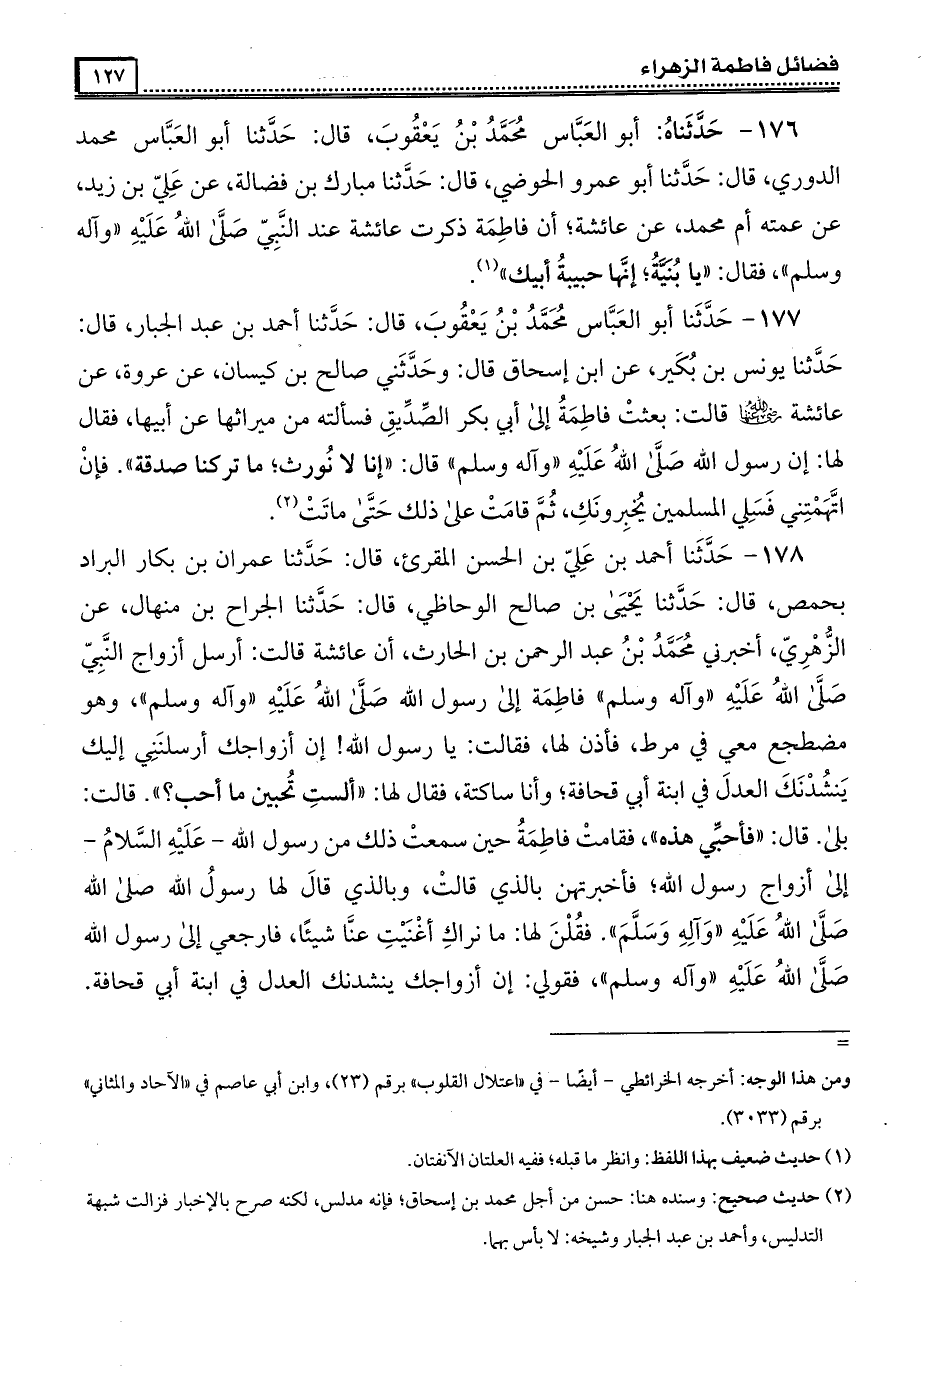 فضائل فاطمة الزهراء
١٢٧
١٧٦- حَدَّثَناهُ: أبو العَبَّاس مُحَمَّدُ بْنُ يَعْقُوبَ، قال: حَدَّثنا أبو العَبَّاس محمد
الدوري، قال: حَدَّثنا أبو عمرو الحوضي، قال: حَدَّثنا مبارك بن فضالة، عن عَلِيّ بن زيد،
عن عمته أم محمد، عن عائشة؛ أن فاطِمَة ذكرت عائشة عند النَّبِيّ صَلَّىٰ اللهُ عَلَيْهِ «وآله
وسلم»، فقال: «يا بُنَيَّةُ؛ إنَّها حبيبةُ أبيك»(١).
١٧٧- حَدَّثَنا أبو العَبَّاس مُحَمَّدُ بْنُ يَعْقُوبَ، قال: حَدَّثنا أحمد بن عبد الجبار، قال:
حَدَّثنا يونس بن بُكَير، عن ابن إسحاق قال: وحَدَّثَني صالح بن كيسان، عن عروة، عن
عائشة رضي الله عنها قالت: بعثتْ فاطِمَةُ إلىٰ أبي بكر الصِّدِّيقِ فسألته من ميراثها عن أبيها، فقال
لها: إن رسول الله صَلَّىٰ اللهُ عَلَيْهِ «وآله وسلم» قال: «إنا لا نُورث؛ ما تركنا صدقة». فإنْ
اتَّهَمْتِني فَسَلِي المسلمين يُخبِرونَكِ، ثُمَّ قامَتْ علىٰ ذلك حَتَّىٰ ماتَتْ(٢).
١٧٨- حَدَّثَنا أحمد بن عَلِيّ بن الحسن المقرئ، قال: حَدَّثنا عمران بن بكار البراد
بحمص، قال: حَدَّثنا يَحْيَىٰ بن صالح الوحاظي، قال: حَدَّثنا الجراح بن منهال، عن
الزُّهْرِيّ، أخبرني مُحَمَّدُ بْنُ عبد الرحمن بن الحارث، أن عائشة قالت: أرسل أزواج النَّبِيّ
صَلَّىٰ اللهُ عَلَيْهِ «وآله وسلم» فاطِمَة إلىٰ رسول الله صَلَّىٰ اللهُ عَلَيْهِ «وآله وسلم»، وهو
مضطجع معي في مرط، فأذن لها، فقالت: يا رسول الله! إن أزواجك أرسلنَنِي إليك
يَنشُدْنَكَ العدلَ في ابنة أبي قحافة؛ وأنا ساكتة، فقال لها: «ألستِ تُحبين ما أحب؟». قالت:
بلىٰ. قال: «فأحبِّي هذه»، فقامتْ فاطِمَةُ حين سمعتْ ذلك من رسول الله - عَلَيْهِ السَّلامُ -
إلىٰ أزواج رسول الله؛ فأخبرتهن بالذي قالتْ، وبالذي قالَ لها رسولُ الله صلىٰ الله
صَلَّىٰ اللهُ عَلَيْهِ «وَآلِهِ وَسَلَّمَ». فقُلْنَ لها: ما نراكِ أغْنَيْتِ عنَّا شيئًا، فارجعي إلىٰ رسول الله
صَلَّىٰ اللهُ عَلَيْهِ «وآله وسلم»، فقولي: إن أزواجك ينشدنك العدل في ابنة أبي قحافة.
=
ومن هذا الوجه: أخرجه الخرائطي - أيضًا - في «اعتلال القلوب» برقم (٢٣)، وابن أبي عاصم في «الآحاد والمثاني»
برقم (٣٠٣٣).
(١) حديث ضعيف بهذا اللفظ: وانظر ما قبله؛ ففيه العلتان الآنفتان.
(٢) حديث صحيح: وسنده هنا: حسن من أجل محمد بن إسحاق؛ فإنه مدلس، لكنه صرح بالإخبار فزالت شبهة
التدليس، وأحمد بن عبد الجبار وشيخه: لا بأس بهما.